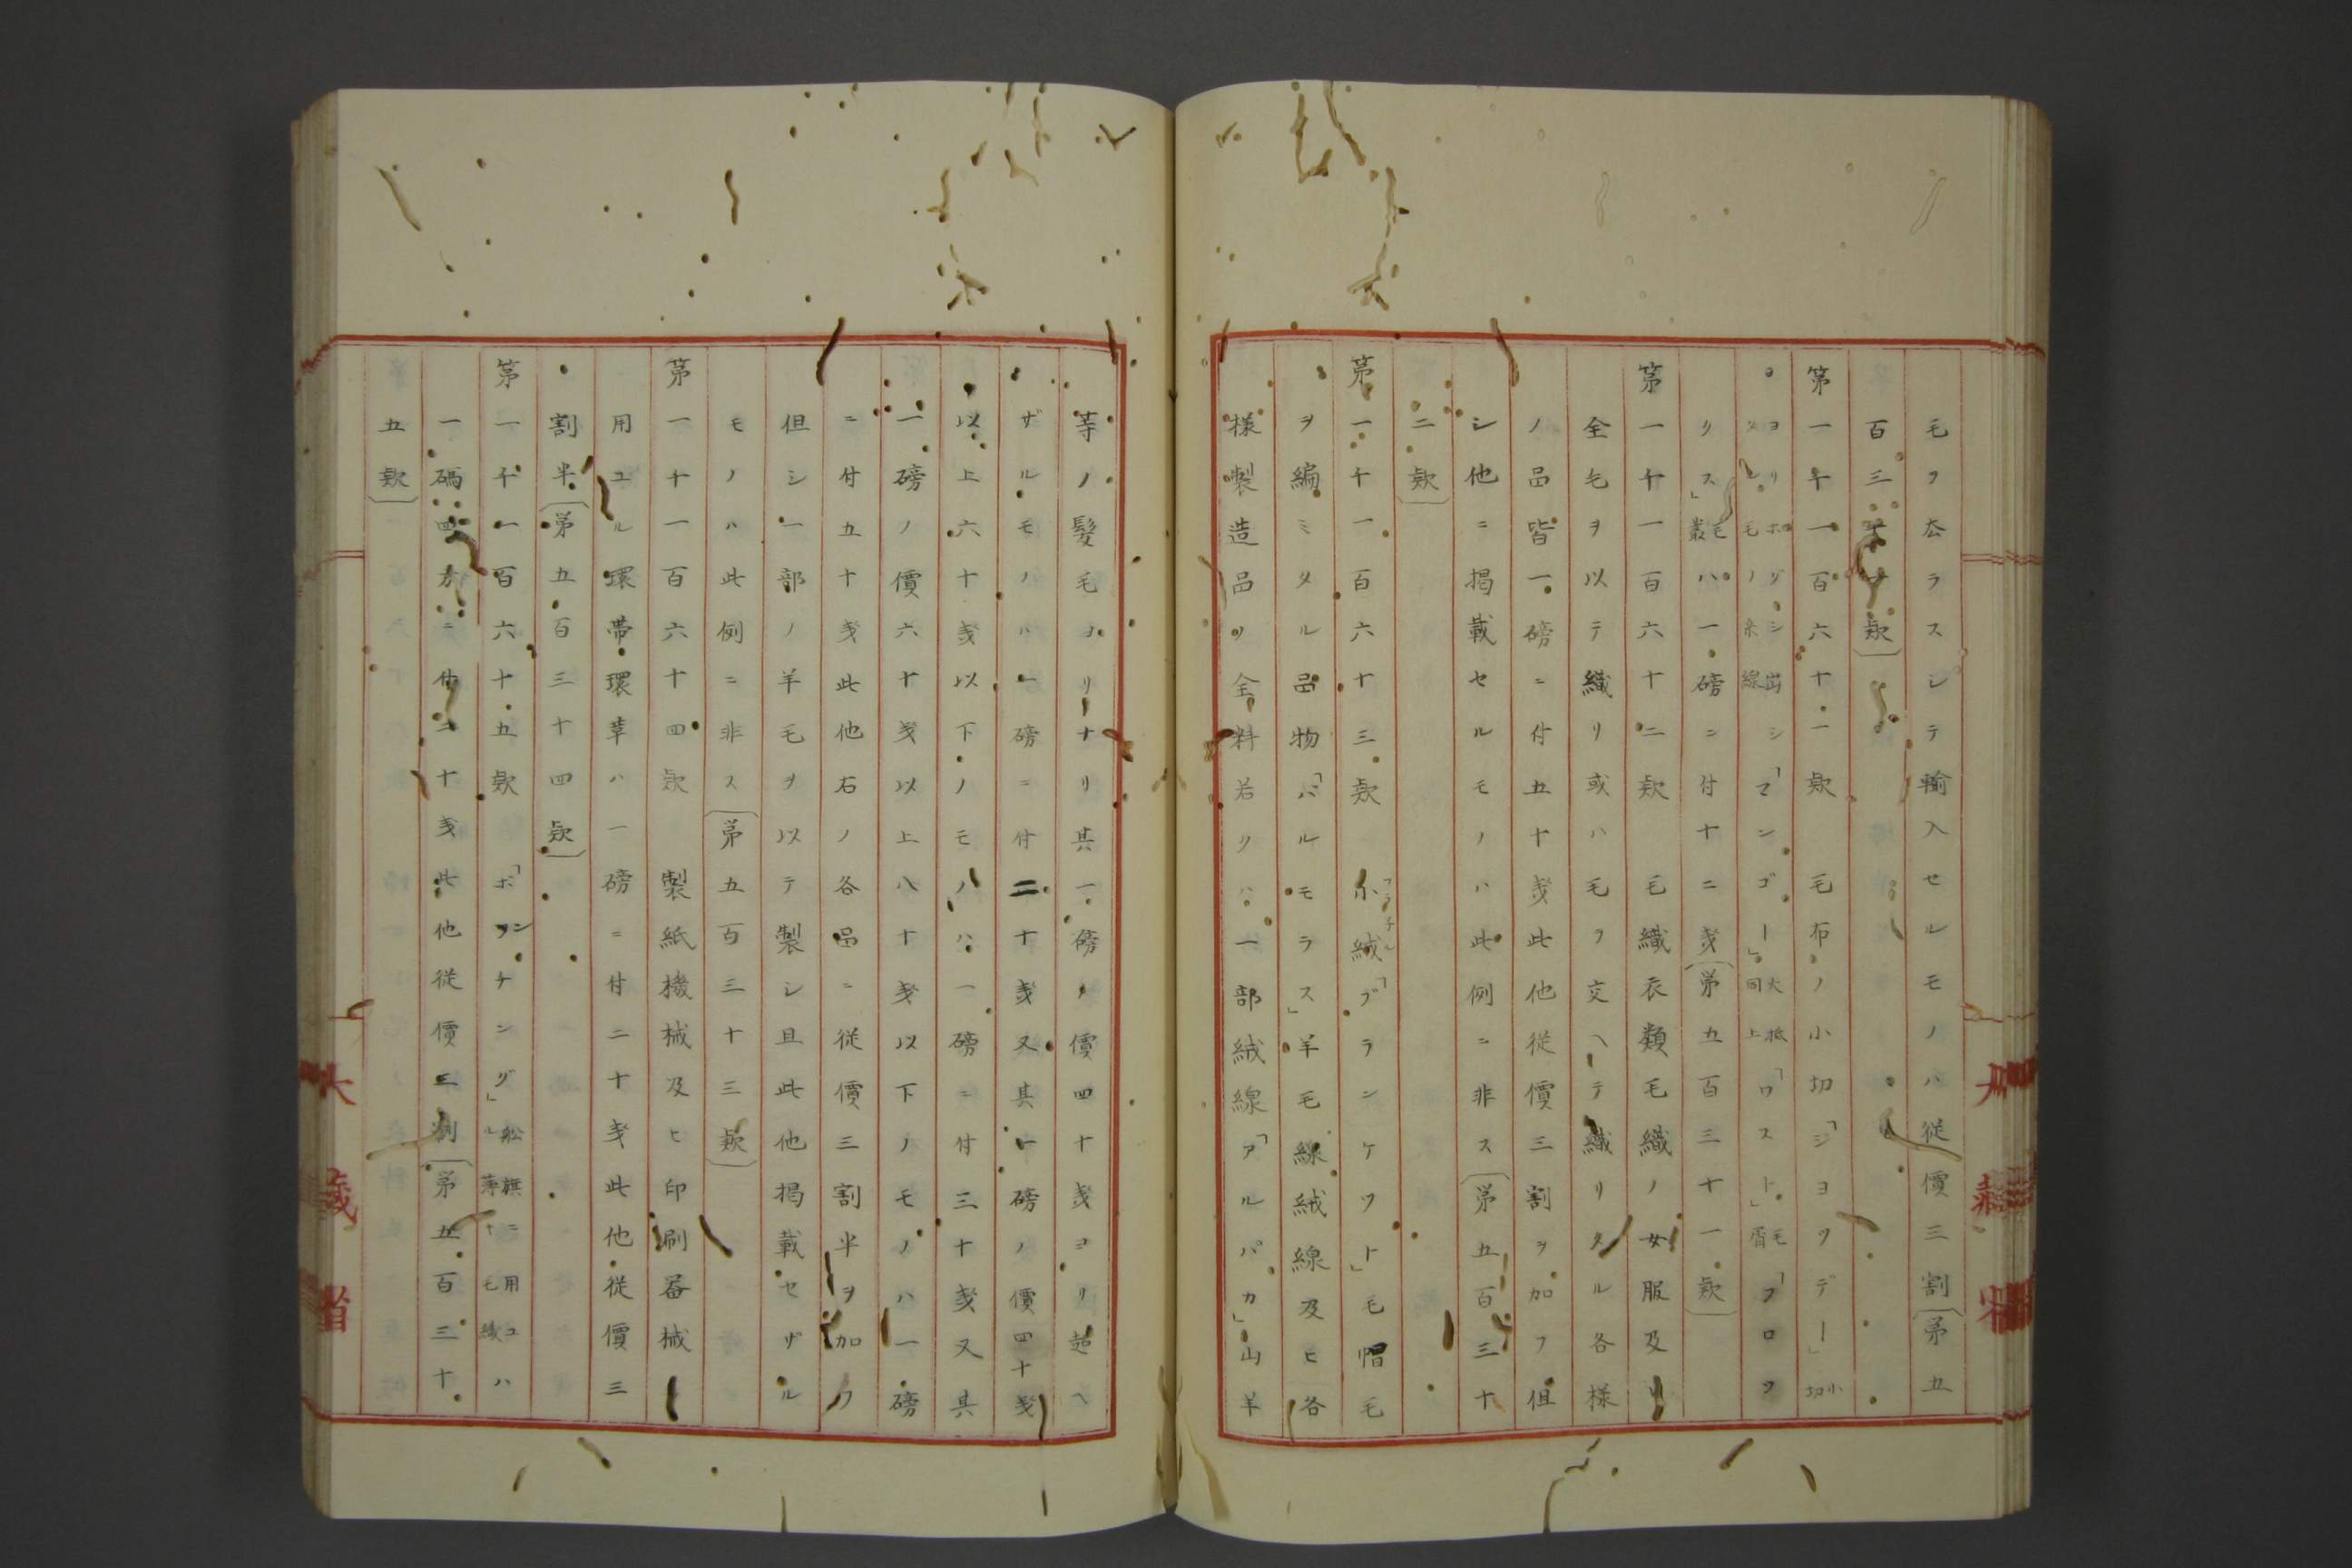 毛ヲ厺ラスシテ輸入セルモノハ従價三割(第五
百三十欵)
第一千一百六十一欵　毛布ノ小切「シヨツデー」小切
ヨリホグシ出シタル毛ノ糸線「マンゴー」大抵同上「ワスト」毛屑「フロツ
クス」毛叢ハ一磅ニ付十二㦮(第五百三十一欵)
第一千一百六十二欵　毛織衣類毛織ノ女服及ヒ
全ク毛ヲ以テ織リ或ハ毛ヲ交ヘテ織リタル各様
ノ品皆一磅ニ付五十㦮此他従價三割ヲ加フ但
シ他ニ掲載セルモノハ此例ニ非ス(第五百三十
二欵)
第一千一百六十三欵　小絨フラネル「ブランケツト」毛帽毛
ヲ編ミタル品物「バルモラス」羊毛線絨線及ヒ各
様製造品ノ全料若クハ一部絨線「アルパカ」山羊
等ノ髪毛ヨリナリ其一磅ノ價四十㦮ヨリ超ヘ
ザルモノハ一磅ニ付二十㦮又其一磅ノ價四十㦮
以上六十㦮以下ノモノハ一磅ニ付三十㦮又其
一磅ノ價六十㦮以上八十㦮以下ノモノハ一磅
ニ付五十㦮此他右ノ各品ニ従價三割半ヲ加フ
但シ一部ノ羊毛ヲ以テ製シ且此他掲載セザル
モノハ此例ニ非ス(第五百三十三欵)
第一千一百六十四欵　製紙機械及ヒ印刷器械
用ユル環帯環革ハ一磅ニ付二十㦮此他従價三
割半(第五百三十四欵)
第一千一百六十五欵　「ボンチング」船旗ニ用ユル薄キ毛織ハ
一碼四方ニ付二十㦮此他従價三割(第五百三十
五欵)
大藏省